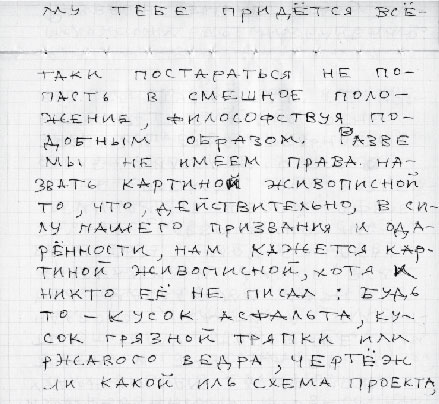 МУ ТЕБЕ ПРИДЁТСЯ ВСЁ-
ТАКИ ПОСТАРАТЬСЯ НЕ ПО-
ПАСТЬ В СМЕШНОЕ ПОЛО-
ЖЕНИЕ, ФИЛОСОФСТВУЯ ПО-
ДОБНЫМ ОБРАЗОМ. РАЗВЕ
МЫ НЕ ИМЕЕМ ПРАВА НА-
ЗВАТЬ КАРТИНОЙ ЖИВОПИСНОЙ
ТО, ЧТО, ДЕЙСТВИТЕЛЬНО, В СИ-
ЛУ НАШЕГО ПРИЗВАНИЯ И ОДА-
РЁННОСТИ, НАМ КАЖЕТСЯ КАР-
ТИНОЙ ЖИВОПИСНОЙ, ХОТЯ И
НИКТО ЕЁ НЕ ПИСАЛ: БУДЬ
ТО – КУСОК АСФАЛЬТА, КУ-
СОК ГРЯЗНОЙ ТРЯПКИ ИЛИ
РЖАВОГО ВЕДРА, ЧЕРТЁЖ
ЛИ КАКОЙ ИЛЬ СХЕМА ПРОЕКТА,